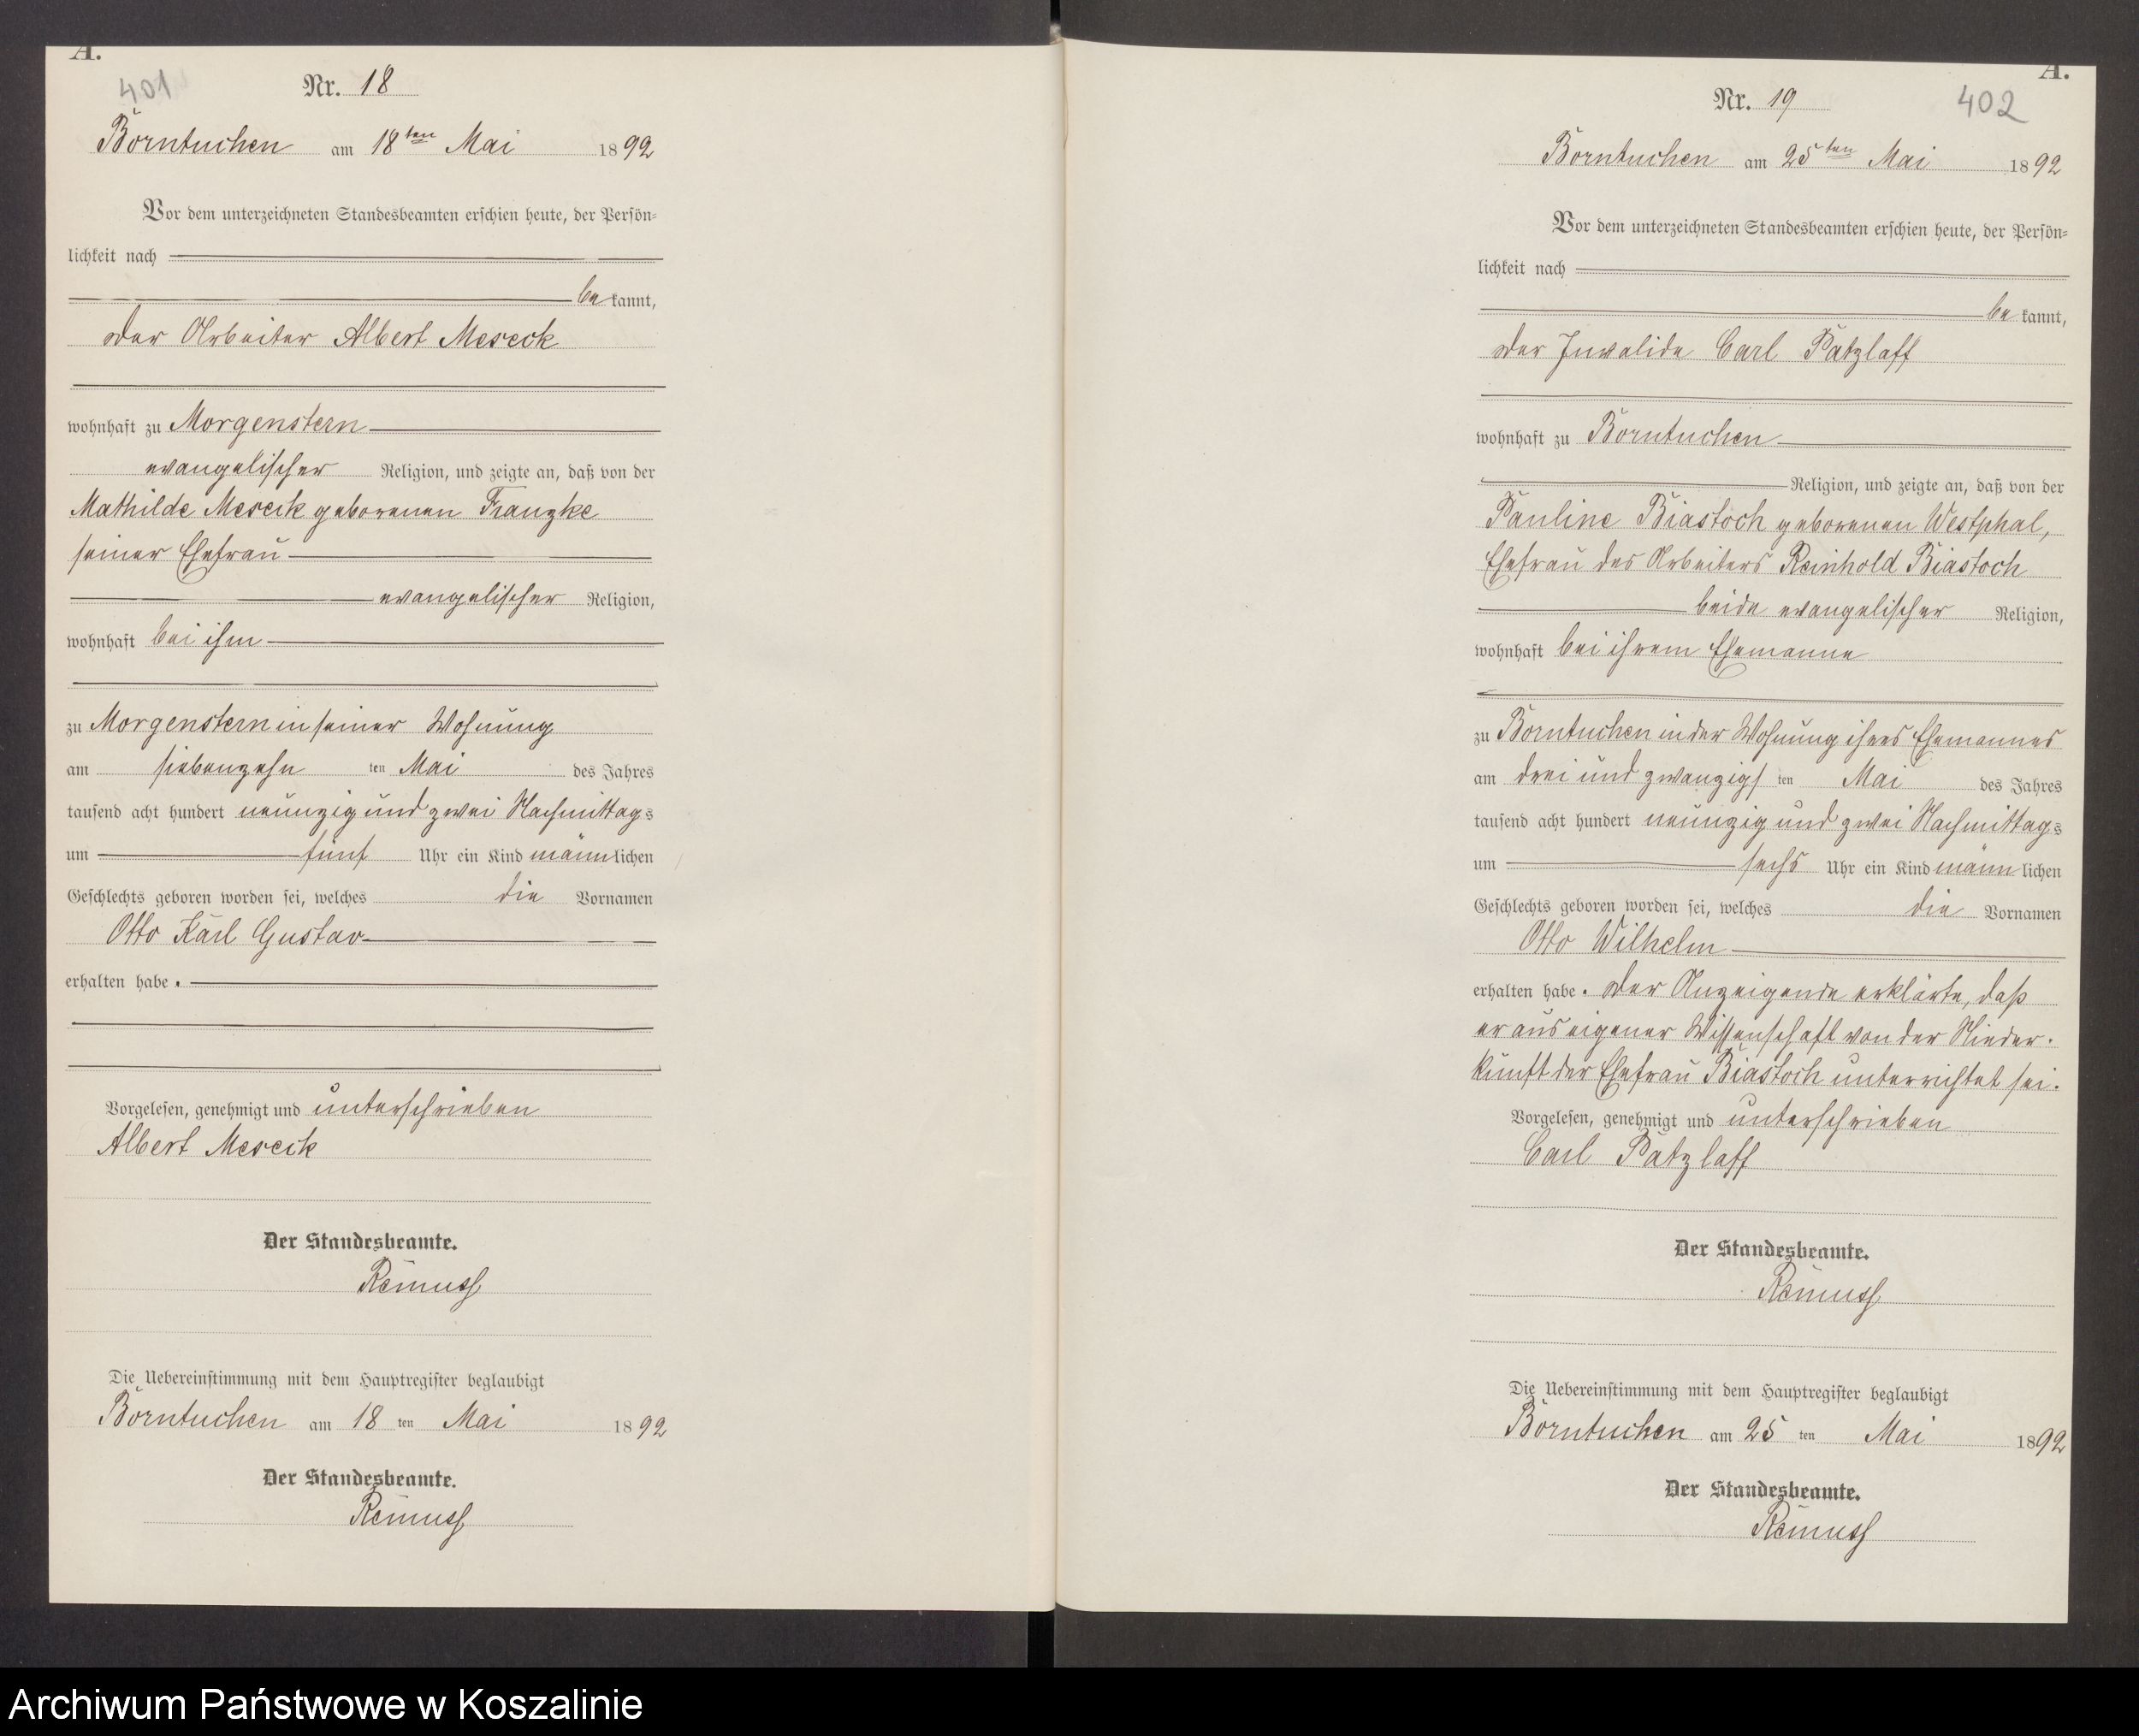 A.
401
Nr. 18
Borntuchen am 18ten Mai 1892
Vor dem unterzeichneten Standesbeamten erschien heute, der Persön=
lichkeit nach
bekannt,
der Arbeiter Albert Mereck
wohnhaft zu Morgenstern
evangelischer Religion, und zeigte an, daß von der
Mathilde Mereck geborenen Franzke
seiner Ehefrau
evangelischer Religion,
wohnhaft bei ihm
zu Morgenstern in seiner Wohnung
am siebenzehn ten Mai des Jahres
tausend acht hundert neunzig und zwei Nachmittags
um fünf Uhr ein Kind männlichen
Geschlechts geboren worden sei, welches die Vornamen
Otto Karl Gustav
erhalten habe.
Vorgelesen, genehmigt und unterschrieben
Albert Mereck
Der Standesbeamte.
Remuss
Die Uebereinstimmung mit dem Hauptregister beglaubigt
Borntuchen am 18 ten Mai 1892
Der Standesbeamte.
Remuss
A.
402
Nr. 19
Borntuchen am 25ten Mai 1892
Vor dem unterzeichneten Standesbeamten erschien heute, der Persön=
lichkeit nach
bekannt,
der Invalide Carl Patzlaff
wohnhaft zu Borntuchen
Religion, und zeigte an, daß von der
Pauline Biastoch geborenen Westphal,
Ehefrau des Arbeiters Reinhold Biastoch
beide evangelischer Religion,
wohnhaft bei ihrem Ehemanne
zu Borntuchen in der Wohnung ihres Ehemannes
am drei und zwanzigs ten Mai des Jahres
tausend acht hundert neunzig und zwei Nachmittags
um sechs Uhr ein Kind männlichen
Geschlechts geboren worden sei, welches die Vornamen
Otto Wilhelm
erhalten habe. Der Anzeigende erklärte, daß
er aus eigener Wissenschaft von der Nieder-
kunft der Ehefrau Biastoch unterrichtet sei.
Vorgelesen, genehmigt und unterschrieben
Carl Patzlaff
Der Standesbeamte.
Remuss
Die Uebereinstimmung mit dem Hauptregister beglaubigt
Borntuchen am 25 ten Mai 1892
Der Standesbeamte.
Remuss
Archiwum Państwowe w Koszalinie